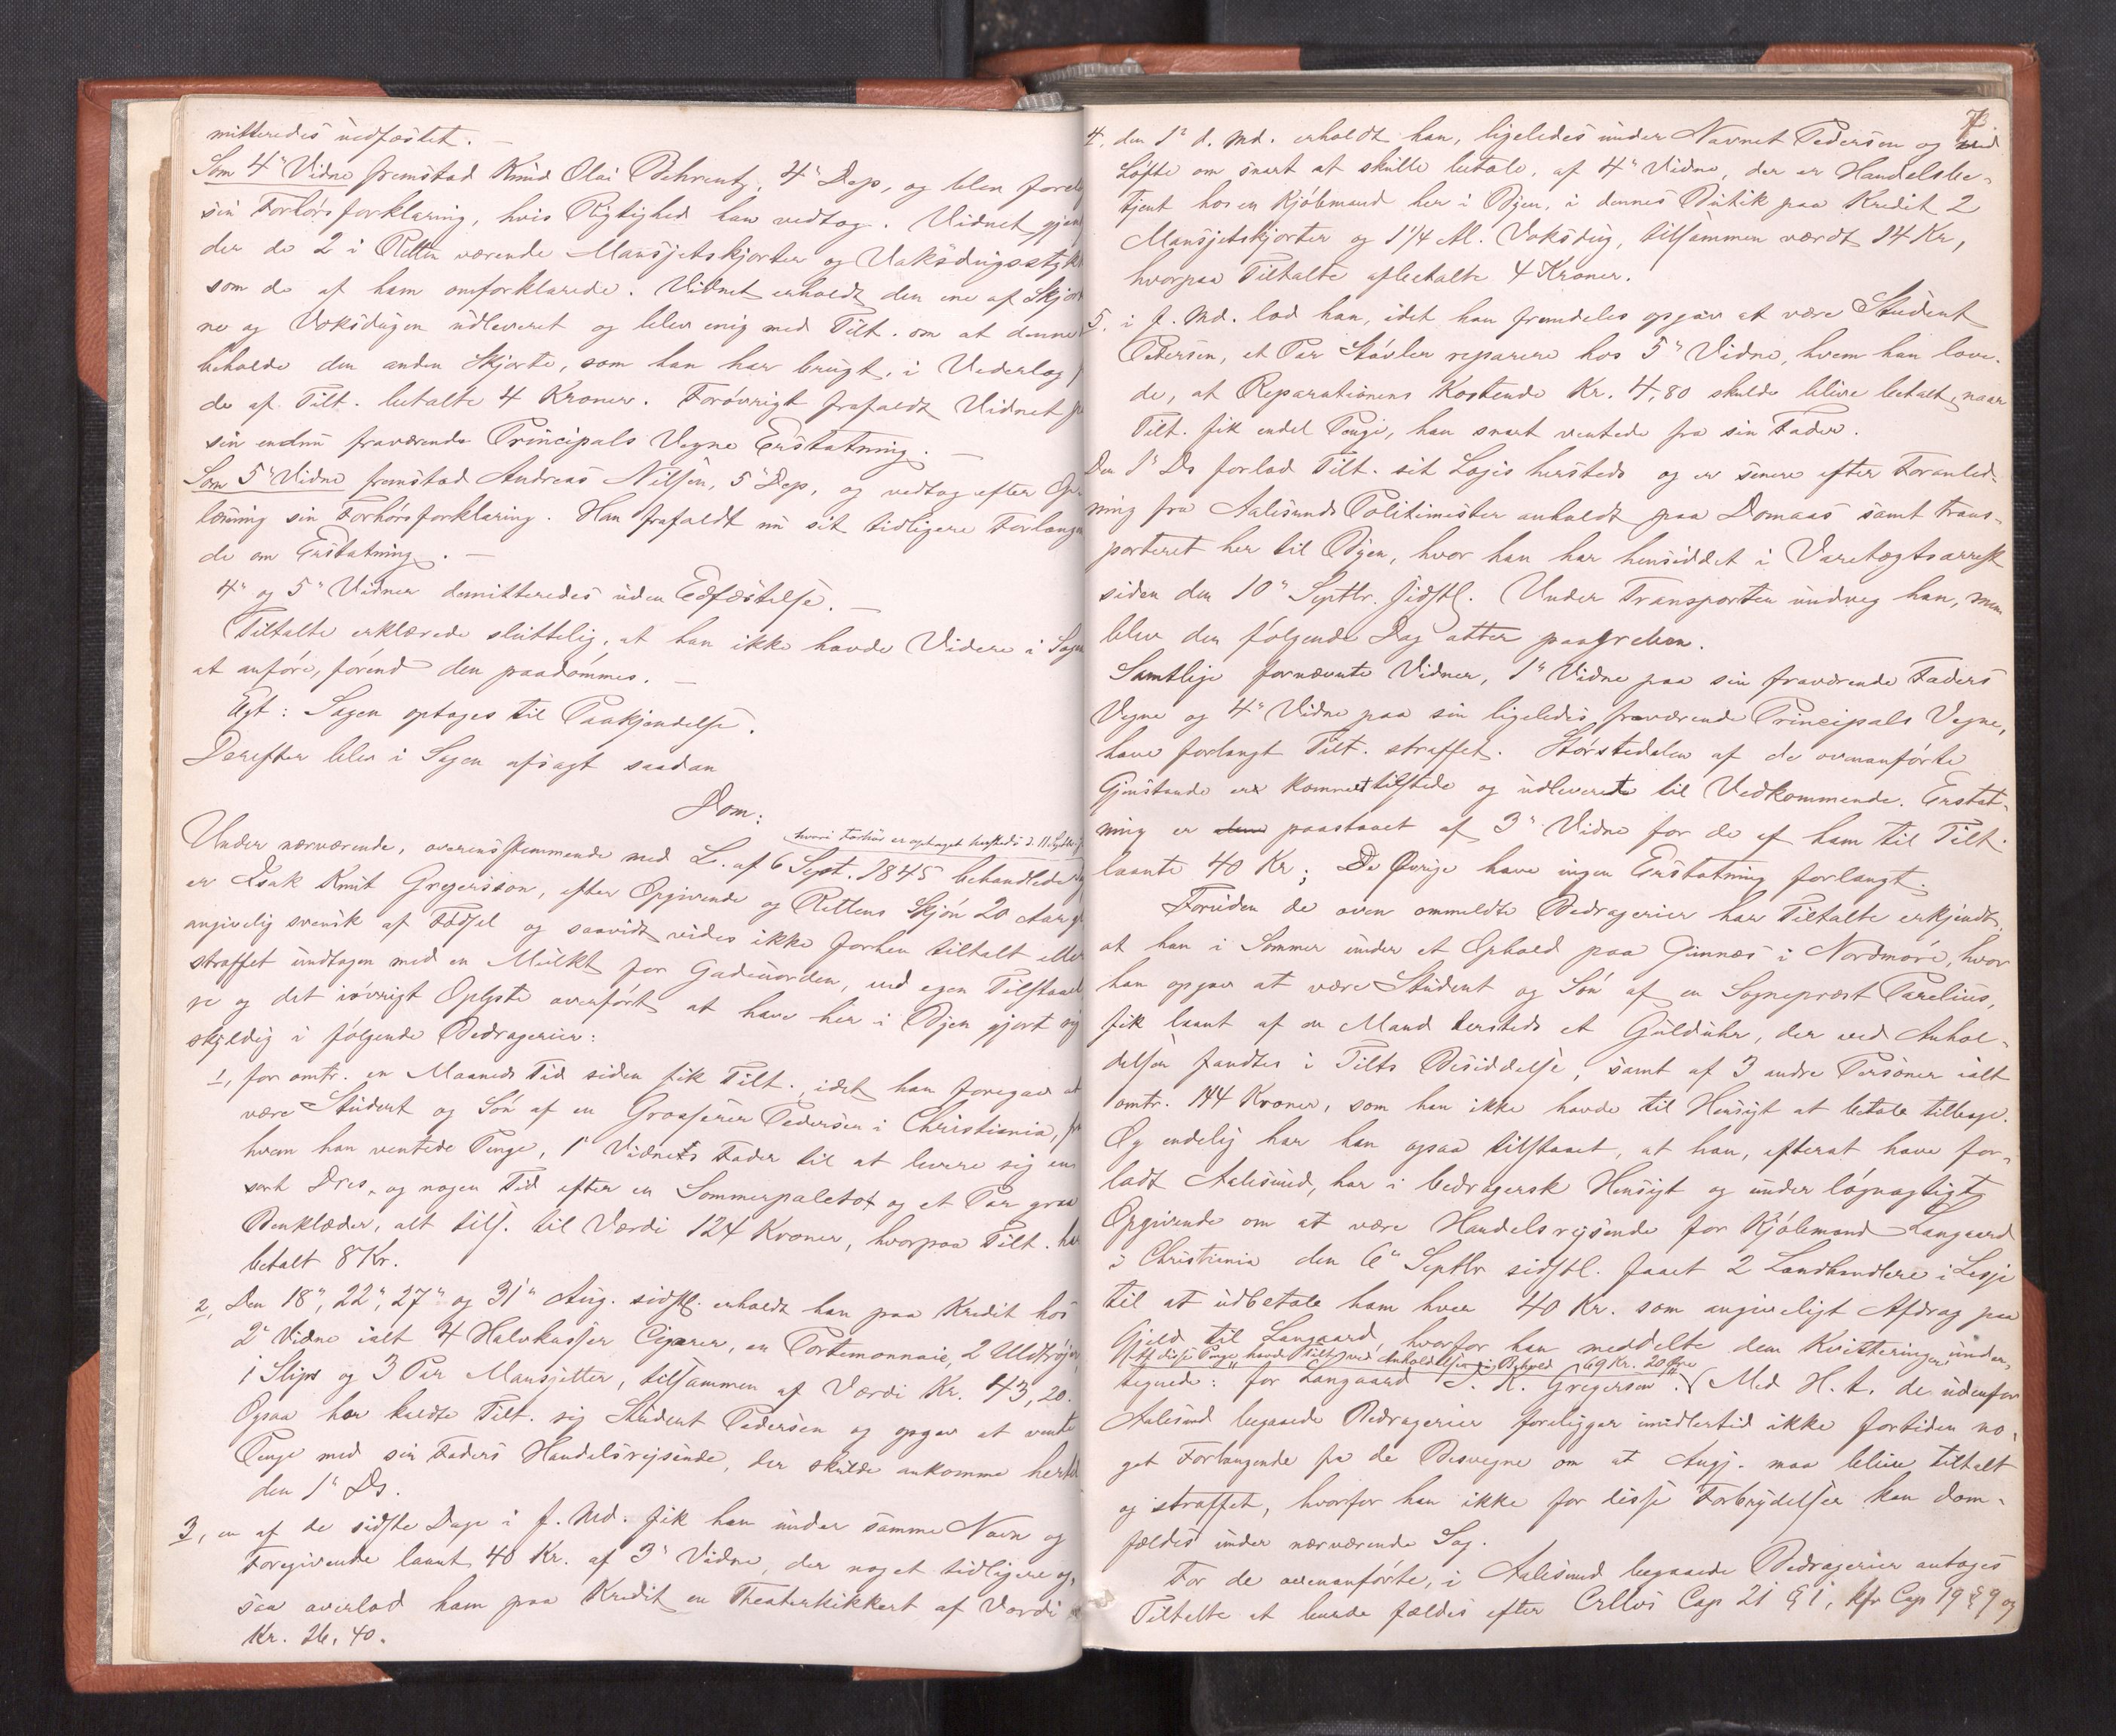 mitteredes uedfæstet. —
Som 4" Vidne fremstod Knud Olai Behrentz, 4" Dep, og blev forel
sin Forhörsforklaring, hvis Rigtighed han vedtog. Vidnet gjen
der de 2 i Retten værende Mansjetskjorter og Voksdugsstyk
som de af ham omforklarede. Vidnet erholdt den ene af Skjor
ne og Voksdugen udleveret og blev enig med Tilt. om at denne
beholde den anden Skjorte, som han har brugt, i Vederlag f
de af Tilt. betalte 4 Kroner. Forövrigt frafaldt Vidnet pa
sin endnu fraværende Principals Vegne Erstatning. —
Som 5" Vidne fremstod Andreas Nilsen, 5" Dep, og vedtog efter Op-
læsning sin Forhörsforklaring. Han frafaldt nu sit tidligere Forlangen
de om Erstatning. —
4" og 5" Vidner demitteredes uden Edfæstelse. —
Tiltalte erklærede sluttelig, at han ikke havde Videre i Sagen
at anföre, förend den paadömmes. —
Egt: Sagen optages til Paakjendelse.
Derefter blev i Sagen afsagt saadan
Dom:
hvori Forhör er optaget hersteds d. 11. Septbr.
Under nærværende, overensstemmende med L. af 6 Sept. 1845 behandlede
er Isak Knut Gregersson, efter Opgivende og Rettens Skjön 20 Aar gl
angivelig svensk af Födsel og saavidt vides ikke forhen tiltalt eller
straffet undtagen med en Mulkt for Gadeuorden, ved egen Tilstaael
se og det iövrigt Oplyste overfört at have her i Byen gjort sig
skyldig i fölgende Bedragerier:
1, for omtr. en Maaneds Tid siden fik Tilt., idet han foregav at
være Student og Sön af en Grosserer Pedersen i Christiania, fra
hvem han ventede Penge, 1" Vidnets Fader til at levere sig en
sort Dres, og nogen Tid efter en Sommerpaletot og et Par graa
Benklæder, alt tils. til Værdi 124 Kroner, hvorpaa Tilt. har
betalt 8 Kr.
2, Den 18", 22", 27" og 31" Aug. sidstl. erholdt han paa Kredit hos
2" Vidne ialt 4 Halvkasser Cigarer, en Portemonnaie, 2 Uldtröjer,
1 Slips og 3 Par Mansjetter, tilsammen af Værdi Kr. 43,20.
Ogsaa her kaldte Tilt. sig Student Pedersen og opgav at vente
Penge med sin Faders Handelsrejsende, der skulde ankomme hertil
den 1" Ds.
3, en af de sidste Dage i f. Md. fik han under samme Navn og
Foregivende laant 40 Kr. af 3" Vidne, der noget tidligere og-
saa overlod ham paa Kredit en Theaterkikkert af Værdi
Kr. 26,40.
7
4, den 1" d. Md. erholdt han, ligeledes under Navnet Pedersen og ved
Löfte om snart at skulle betale, af 4" Vidne, der er Handelsbe-
tjent hos en Kjöbmand her i Byen, i dennes Butik paa Kredit 2
Mansjetskjorter og 1 1/4 Al. Voksdug, tilsammen værdt 14 Kr,
hvorpaa Tiltalte afbetalte 4 Kroner.
5, i f. Md. lod han, idet han fremdeles opgav at være Student
Pedersen, et Par Stövler reparere hos 5" Vidne, hvem han love-
de, at Reparationens Kostende Kr. 4,80 skulde blive betalt, naar
Tilt. fik endel Penge, han snart ventede fra sin Fader.
Den 1" Ds forlod Tilt. sit Logis hersteds og er senere efter Foranled-
ning fra Aalesunds Politimester anholdt paa Domaas samt trans-
porteret her til Byen, hvor han har hensiddet i Varetægtsarrest
siden den 10" Septbr. sidstl. Under Transporten undveg han, men
blev den fölgende Dag atter paagreben.
Samtlige fornævnte Vidner, 1" Vidne paa sin fraværende Faders
Vegne og 4" Vidne paa sin ligeledes fraværende Principals Vegne,
have forlangt Tilt. straffet. Störstedelen af de ovenanförte
Gjenstande er kommet tilstede og udleveret til Vedkommende. Erstat-
ning er paastaaet af 3" Vidne for de af ham til Tilt.
laante 40 Kr; De Övrige have ingen Erstatning forlangt.
Foruden de oven ommeldte Bedragerier har Tiltalte erkjendt,
at han i Sommer under et Ophold paa Gimnæs i Nordmöre, hvor
han opgav at være Student og Sön af en Sogneprest Parelius,
fik laant af en Mand dersteds et Gulduhr, der ved Anhol-
delsen fandtes i Tilts Besiddelse, samt af 3 andre Personer ialt
omtr. 144 Kroner, som han ikke havde til Hensigt at betale tilbage.
Og endelig har han ogsaa tilstaaet, at han, efterat have for-
ladt Aalesund, har i bedragersk Hensigt og under lögnagtigt
Opgivende om at være Handelsrejsende for Kjöbmand Langaard
i Christiania den 6" Septbr sidstl. faaet 2 Landhandlere i Lesje
til at udbetale ham hver 40 Kr. som angiveligt Afdrag paa
Gjeld til Langaard, hvorfor han meddelte dem Kvitteringer, under-
Af disse Penge havde Tilt. ved Anholdelsen i Behold 69 Kr. 20 Öre
tegnede: "for Langaard I. K. Gregersen". Med H. t. de udenfor
Aalesund begaaede Bedragerier foreligger imidlertid ikke fortiden no-
get Forlangende fra de Besvegne om at Angj. maa blive tiltalt
og straffet, hvorfor han ikke for disse Forbrydelser kan dom-
fældes under nærværende Sag.
For de ovenanförte, i Aalesund begaaede Bedragerier antages
Tiltalte at burde fældes efter Crllvs Cap 21 § 1, kfr Cap 19 § 9 og